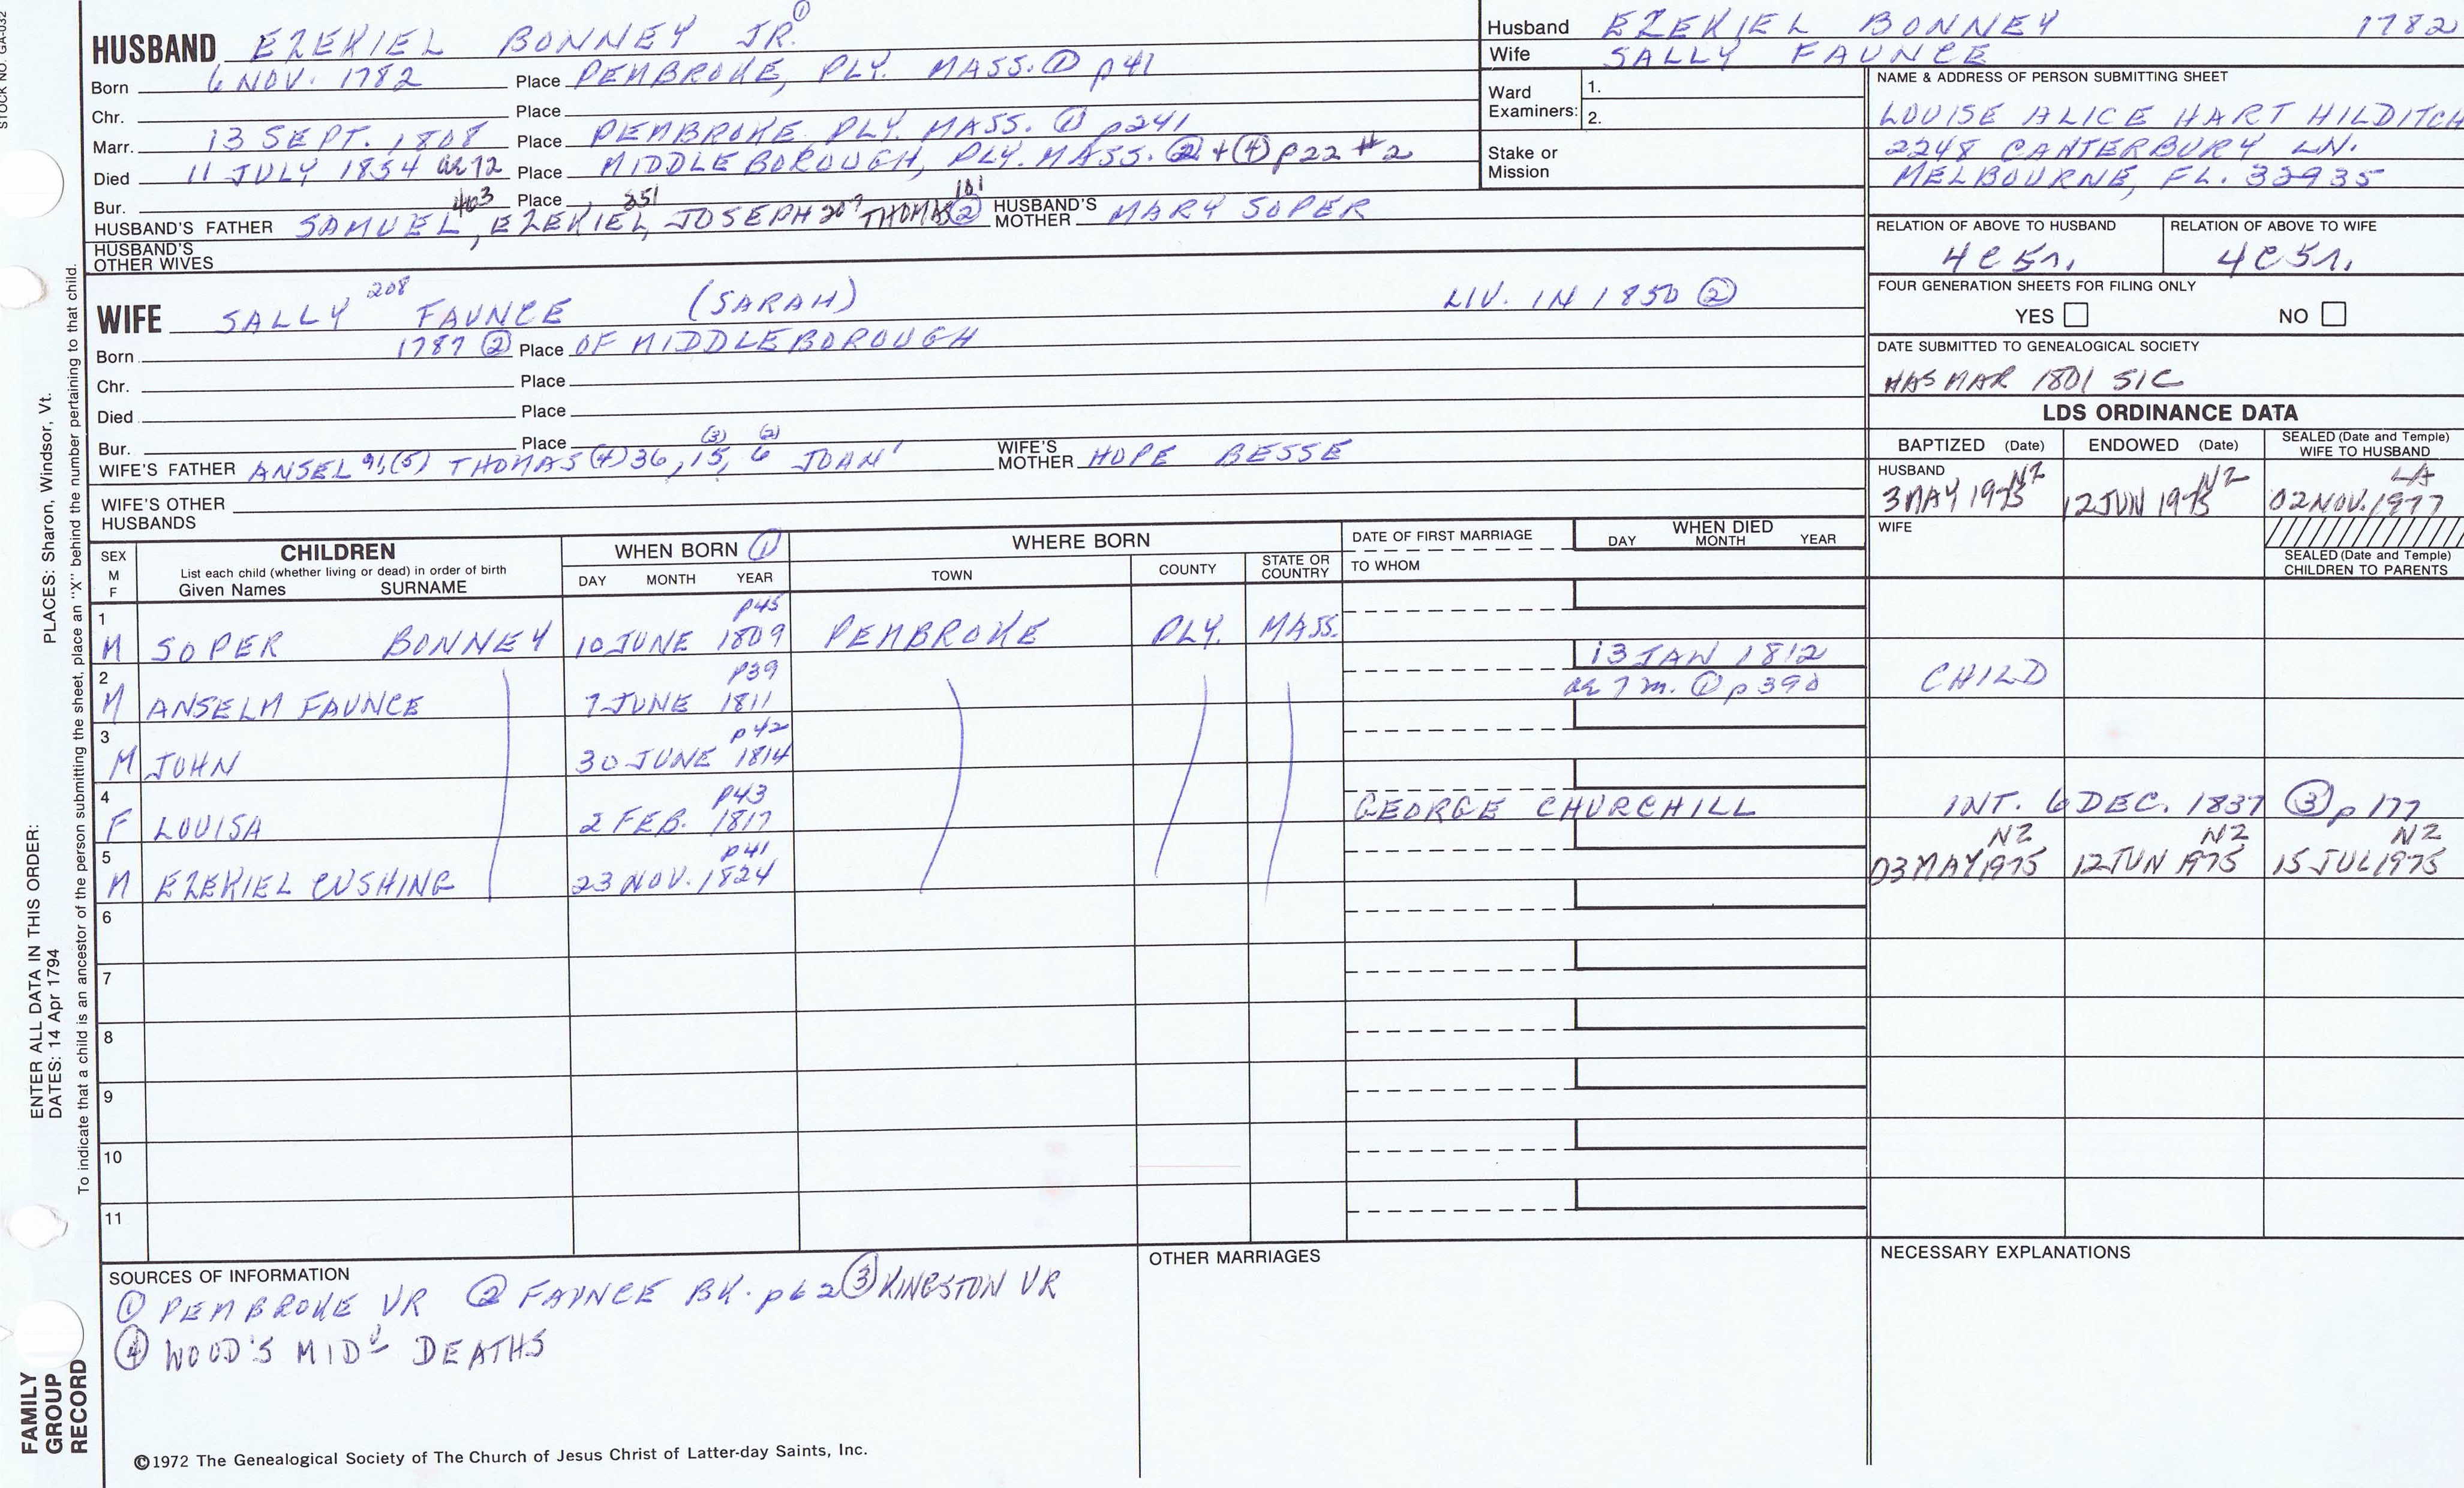 STOCK NO. GA-032
HUSBAND EZEKIEL BONNEY JR. ①
Born 6 NOV. 1782 Place PEMBROKE, PLY. MASS. ① p41
Chr. Place
Marr. 13 SEPT. 1808 Place PEMBROKE PLY. MASS. ① p241
Died 11 JULY 1854 ae 72 Place MIDDLEBOROUGH, PLY. MASS. ② + ④ p22 #2
Bur. Place
HUSBAND'S FATHER SAMUEL 403, EZEKIEL 351, JOSEPH 207 THOMAS 101 ② HUSBAND'S MOTHER MARY SOPER
HUSBAND'S OTHER WIVES
WIFE SALLY 208 FAUNCE (SARAH) LIV. IN 1850 ②
Born 1787 ② Place OF MIDDLEBOROUGH
Chr. Place
Died Place
Bur. Place
WIFE'S FATHER ANSEL 91,(5) THOMAS (4) 36, 15, (3) 6 (2) JOHN 1 WIFE'S MOTHER HOPE BESSE
WIFE'S OTHER HUSBANDS
Husband EZEKIEL BONNEY 1782
Wife SALLY FAUNCE
Ward Examiners: 1.
2.
Stake or Mission
NAME & ADDRESS OF PERSON SUBMITTING SHEET
LOUISE ALICE HART HILDITCH
2248 CANTERBURY LN.
MELBOURNE, FL. 32935
RELATION OF ABOVE TO HUSBAND RELATION OF ABOVE TO WIFE
4C5r. 4C5r.
FOUR GENERATION SHEETS FOR FILING ONLY
YES NO
DATE SUBMITTED TO GENEALOGICAL SOCIETY
HAS MAR 1801 SIC
LDS ORDINANCE DATA
BAPTIZED (Date) ENDOWED (Date) SEALED (Date and Temple) WIFE TO HUSBAND
HUSBAND NZ NZ LA
3 MAY 1975 12 JUN 1975 02 NOV. 1977
WIFE
SEALED (Date and Temple) CHILDREN TO PARENTS
SEX M F CHILDREN List each child (whether living or dead) in order of birth Given Names SURNAME WHEN BORN ① DAY MONTH YEAR WHERE BORN TOWN COUNTY STATE OR COUNTRY DATE OF FIRST MARRIAGE TO WHOM WHEN DIED DAY MONTH YEAR
1 p45
M SOPER BONNEY 10 JUNE 1809 PEMBROKE PLY. MASS.
2 p39 13 JAN 1812
M ANSELM FAUNCE 7 JUNE 1811 ae 7 m. ① p390 CHILD
3 p42
M JOHN 30 JUNE 1814
4 p43
F LOUISA 2 FEB. 1817 GEORGE CHURCHILL INT. 6 DEC. 1837 ③ p177
5 p41 NZ NZ NZ
M EZEKIEL CUSHING 23 NOV. 1824 03 MAY 1975 12 JUN 1975 15 JUL 1975
6
7
8
9
10
11
SOURCES OF INFORMATION
① PEMBROKE VR ② FAUNCE BK. p62 ③ KINGSTON VR
④ WOOD'S MID. DEATHS
OTHER MARRIAGES
NECESSARY EXPLANATIONS
©1972 The Genealogical Society of The Church of Jesus Christ of Latter-day Saints, Inc.
ENTER ALL DATA IN THIS ORDER: PLACES: Sharon, Windsor, Vt.
DATES: 14 Apr 1794
To indicate that a child is an ancestor of the person submitting the sheet, place an "X" behind the number pertaining to that child.
FAMILY
GROUP
RECORD